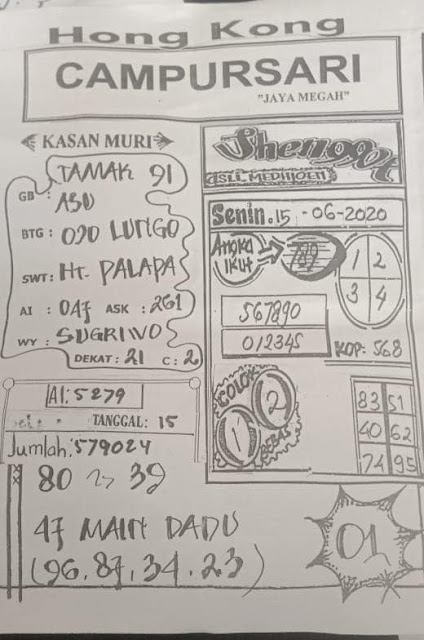 Hong Kong
CAMPURSARI
"JAYA MEGAH"
KASAN MURI
TAMAK 91
GB : ASU
BTG : 090 LUNGO
SWT : Hr. PALAPA
AI : 047 ASK : 261
WY : SUGRIWO
DEKAT : 21 C : 2
AI : 5279
TANGGAL : 15
Jumlah : 579024
80 ~> 39
47 MAIN DADU
(96.87.34.23)
ASLI MEDIHOEN
Senin . 15 - 06-2020
Angka IKUt
789
1 2
3 4
567890
012345
KOP : 568
COLOK
1 2
BEBAS
83 51
40 62
74 95
01